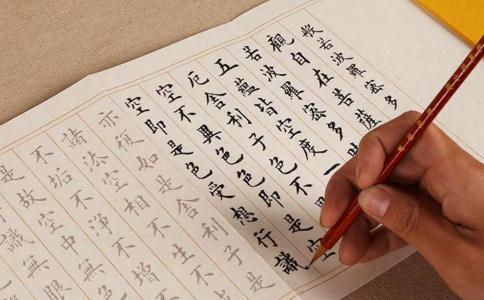 般若波羅蜜多
觀自在菩薩
若波羅蜜多時
五蘊皆空度一
厄舍利子色不異
空不異色色即是空
空即是色受想行識
亦復如是舍利子是
諸法空相不生不
不垢不淨不增
是故空中無
識無眼